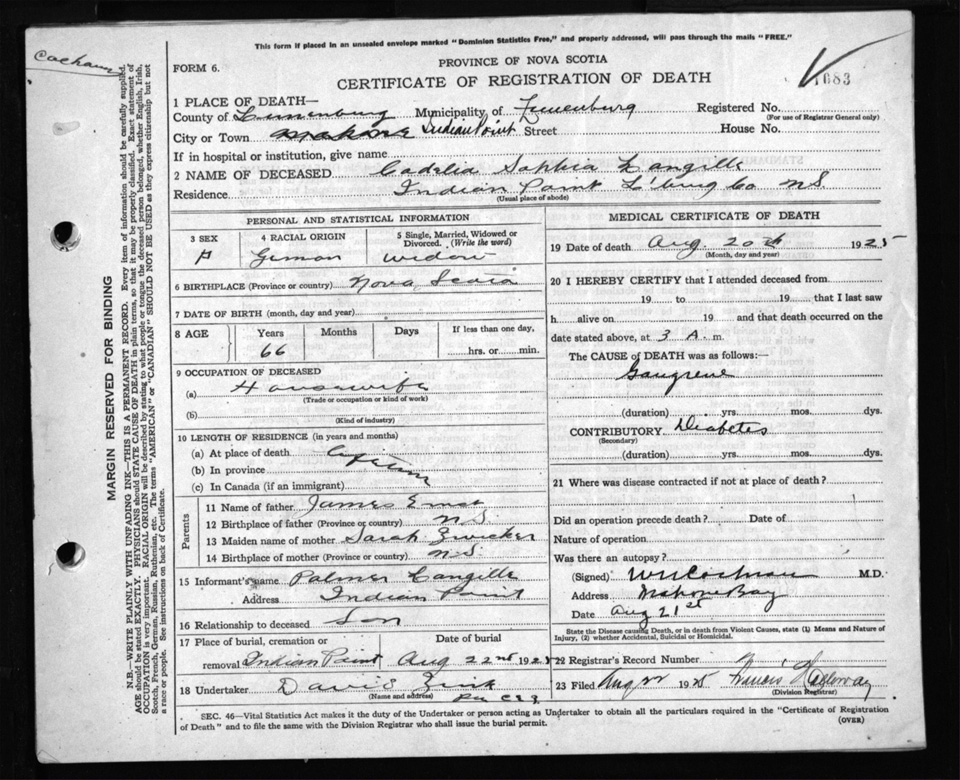 This form if placed in an unsealed envelope marked "Dominion Statistics Free," and properly addressed, will pass through the mails "FREE."
Cochran
FORM 6.
PROVINCE OF NOVA SCOTIA
CERTIFICATE OF REGISTRATION OF DEATH
1083
1 PLACE OF DEATH—
County of Lunenburg Municipality of Lunenburg Registered No.
(For use of Registrar General only)
City or Town Mahone Indian Point Street House No.
If in hospital or institution, give name
2 NAME OF DECEASED Sophia Langille
Residence Indian Point L'burg Co N.S.
(Usual place of abode)
PERSONAL AND STATISTICAL INFORMATION
3 SEX
4 RACIAL ORIGIN
5 Single, Married, Widowed or Divorced. (Write the word)
F German widow
6 BIRTHPLACE (Province or country) Nova Scotia
7 DATE OF BIRTH (month, day and year)
8 AGE Years Months Days If less than one day,
66 hrs. or min.
9 OCCUPATION OF DECEASED
(a) Housewife
(Trade or occupation or kind of work)
(b)
(Kind of industry)
10 LENGTH OF RESIDENCE (in years and months)
(a) At place of death lifetime
(b) In province
(c) In Canada (if an immigrant)
Parents
11 Name of father James Ernst
12 Birthplace of father (Province or country) N.S.
13 Maiden name of mother Sarah Zwicker
14 Birthplace of mother (Province or country) N.S.
15 Informant's name Palmer Langille
Address Indian Point
16 Relationship to deceased Son
17 Place of burial, cremation or Date of burial
removal Indian Point Aug 22nd 1925
18 Undertaker Zink
(Name and address)
MEDICAL CERTIFICATE OF DEATH
19 Date of death Aug. 20th 1925
(Month, day and year)
20 I HEREBY CERTIFY that I attended deceased from
19 to 19 that I last saw
h alive on 19 and that death occurred on the
date stated above, at 3 A. m.
The CAUSE OF DEATH was as follows:—
Gangrene
(duration) yrs. mos. dys.
CONTRIBUTORY Diabetes
(Secondary)
(duration) yrs. mos. dys.
21 Where was disease contracted if not at place of death?
Did an operation precede death? Date of
Nature of operation
Was there an autopsy?
(Signed) Cochran M.D.
Address Mahone Bay
Date Aug 21st
State the Disease causing Death, or in death from Violent Causes, state (1) Means and Nature of
Injury, (2) whether Accidental, Suicidal or Homicidal.
22 Registrar's Record Number
23 Filed Aug 22 1925 Francis Holloway
(Division Registrar)
SEC. 46—Vital Statistics Act makes it the duty of the Undertaker or person acting as Undertaker to obtain all the particulars required in the "Certificate of Registration
of Death" and to file the same with the Division Registrar who shall issue the burial permit.
(OVER)
MARGIN RESERVED FOR BINDING
N.B.—WRITE PLAINLY WITH UNFADING INK—THIS IS A PERMANENT RECORD. Every item of information should be carefully supplied.
AGE should be stated EXACTLY. PHYSICIANS should STATE CAUSE OF DEATH in plain terms, so that it may be properly classified. Exact statement of
OCCUPATION is very important. RACIAL ORIGIN will be described by stating to what people or tongue the deceased person belonged, whether English, Irish,
Scotch, French, German, Russian, Ruthenian, etc. The terms "AMERICAN" or "CANADIAN" SHOULD NOT BE USED as they express citizenship but not
a race or people. See instructions on back of Certificate.